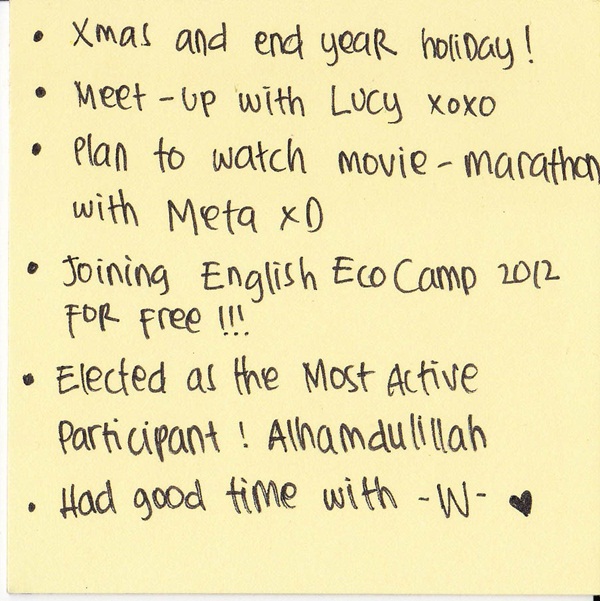 • Xmas and end year holiday!
• Meet-up with Lucy xoxo
• Plan to watch movie-marathon
with Meta xD
• Joining English Eco Camp 2012
FOR Free !!!
• Elected as the Most Active
Participant ! Alhamdulillah
• Had good time with -W- ♥